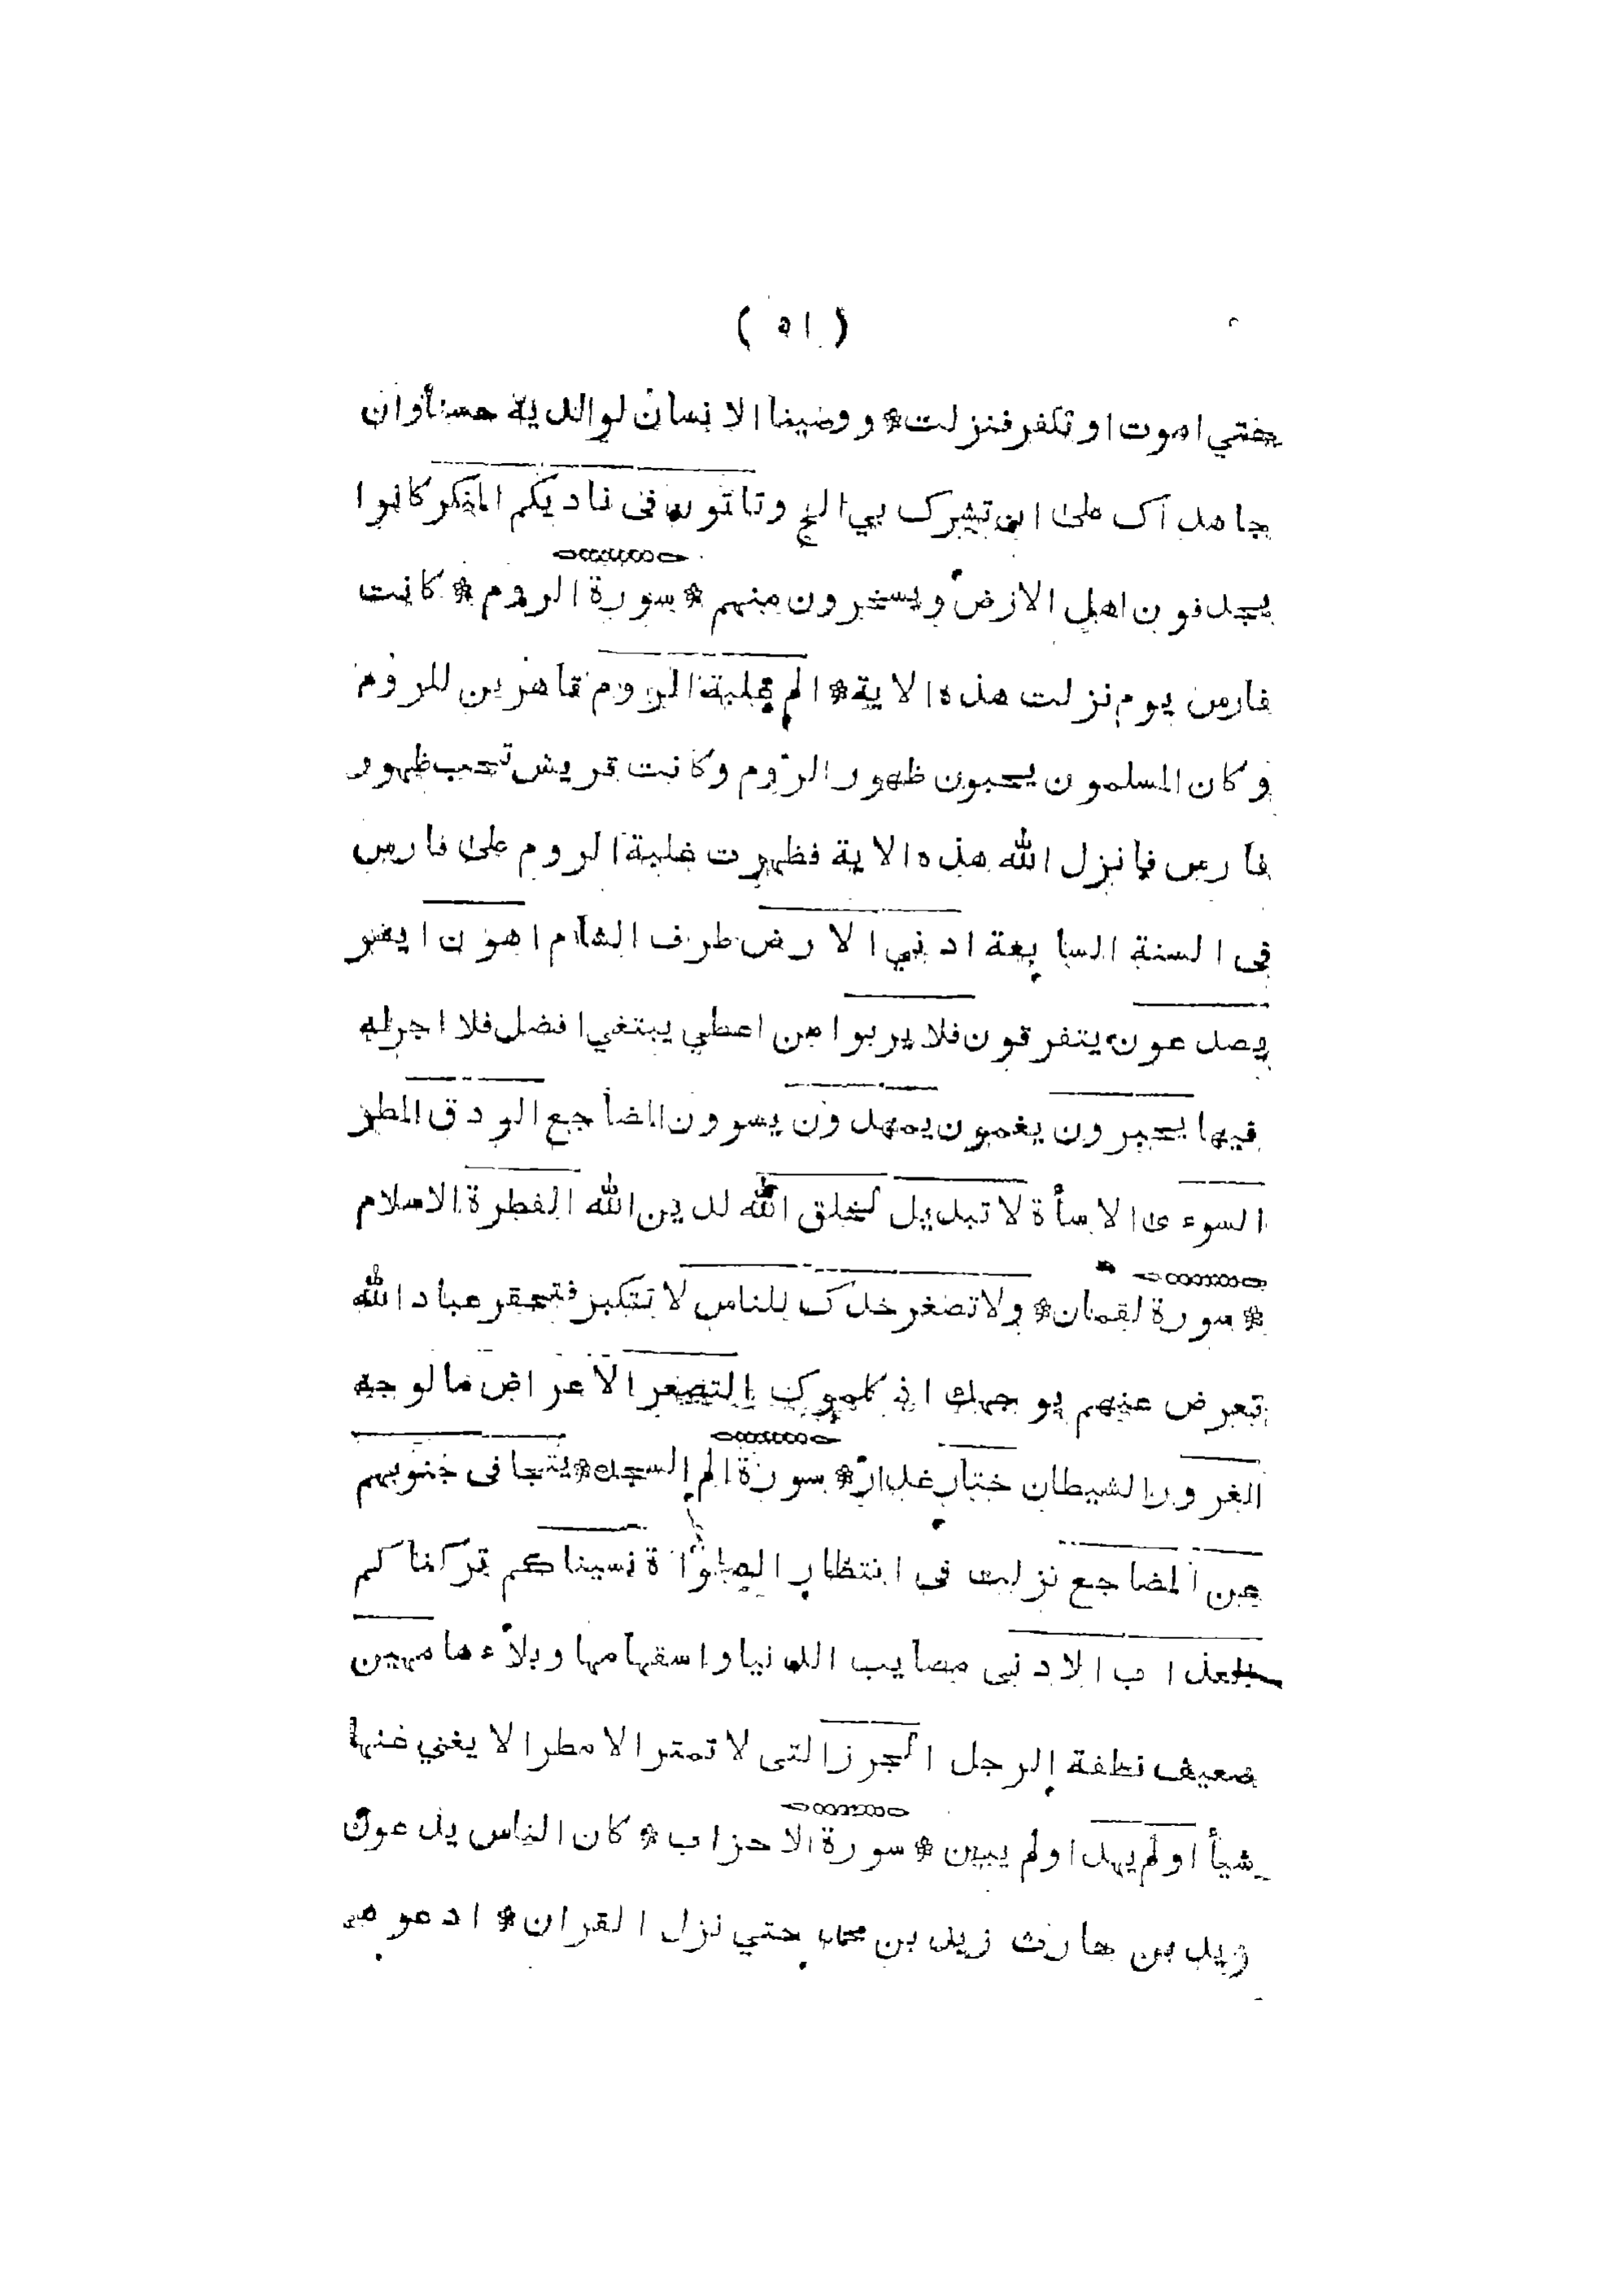 ( ٥١ )
حتي اموت او تكفر فنزلت * ووصينا الانسان لوالدية حسنأ وان
جاهداك على ان تشرك بي الخ وتاتون فى ناديكم المنكر كانوا
يجدفون اهل الارض ويسخرون منهم * سورة الروم * كانت
فارس يوم نزلت هذه الاية * الم غلبة الروم قاهرين للروم
وكان المسلمون يحبون ظهور الروم وكانت قريش تحب ظهور
فارس فانزل الله هذه الاية فظهرت غلبة الروم على فارس
فى السنة السابعة ادني الارض طرف الشام اهون ايسر
يصدعون يتفرقون فلا يربوا من اعطي يبتغي افضل فلا اجرله
فيها يحبرون يغمون يمهدون يسوون المضاجع الودق المطر
السوءى الاسأة لا تبديل لخلق الله لدين الله الفطرة الاسلام
* سورة لقمان * ولا تصغر خدك للناس لا تتكبر فتحقر عباد الله
تعرض عنهم بوجهك اذ كلموك التصعر الاعراض مالوجه
الغرور الشيطان ختار غدار * سورة الم السجدة * يتجافى جنوبهم
عن المضاجع نزلت فى انتظار الصلواة نسيناكم تركناكم
العذاب الادنى مصايب الدنيا واسقهامها وبلاءها مهين
ضعيف نطفة الرجل الجرز التى لا تمتر الا مطرا لا يغني عنها
شيأ اولم يهد اولم يبين * سورة الاحزاب * كان الناس يدعون
زيد بن حارث زيد بن محمد حتي نزل القران * ادعوهم